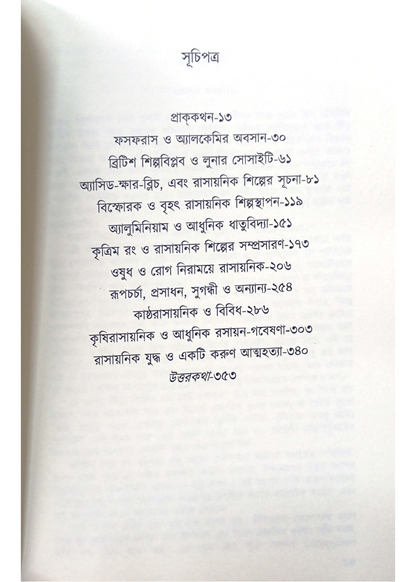 সূচিপত্র
প্রাক্‌কথন-১৩
ফসফরাস ও অ্যালকেমির অবসান-৩০
ব্রিটিশ শিল্পবিপ্লব ও লুনার সোসাইটি-৬১
অ্যাসিড-ক্ষার-ব্লিচ, এবং রাসায়নিক শিল্পের সূচনা-৮১
বিস্ফোরক ও বৃহৎ রাসায়নিক শিল্পস্থাপন-১১৯
অ্যালুমিনিয়াম ও আধুনিক ধাতুবিদ্যা-১৫১
কৃত্রিম রং ও রাসায়নিক শিল্পের সম্প্রসারণ-১৭৩
ওষুধ ও রোগ নিরাময়ে রাসায়নিক-২০৬
রূপচর্চা, প্রসাধন, সুগন্ধী ও অন্যান্য-২৫৪
কাষ্ঠরাসায়নিক ও বিবিধ-২৮৬
কৃষিরাসায়নিক ও আধুনিক রসায়ন-গবেষণা-৩০৩
রাসায়নিক যুদ্ধ ও একটি করুণ আত্মহত্যা-৩৪০
উত্তরকথা-৩৫৩